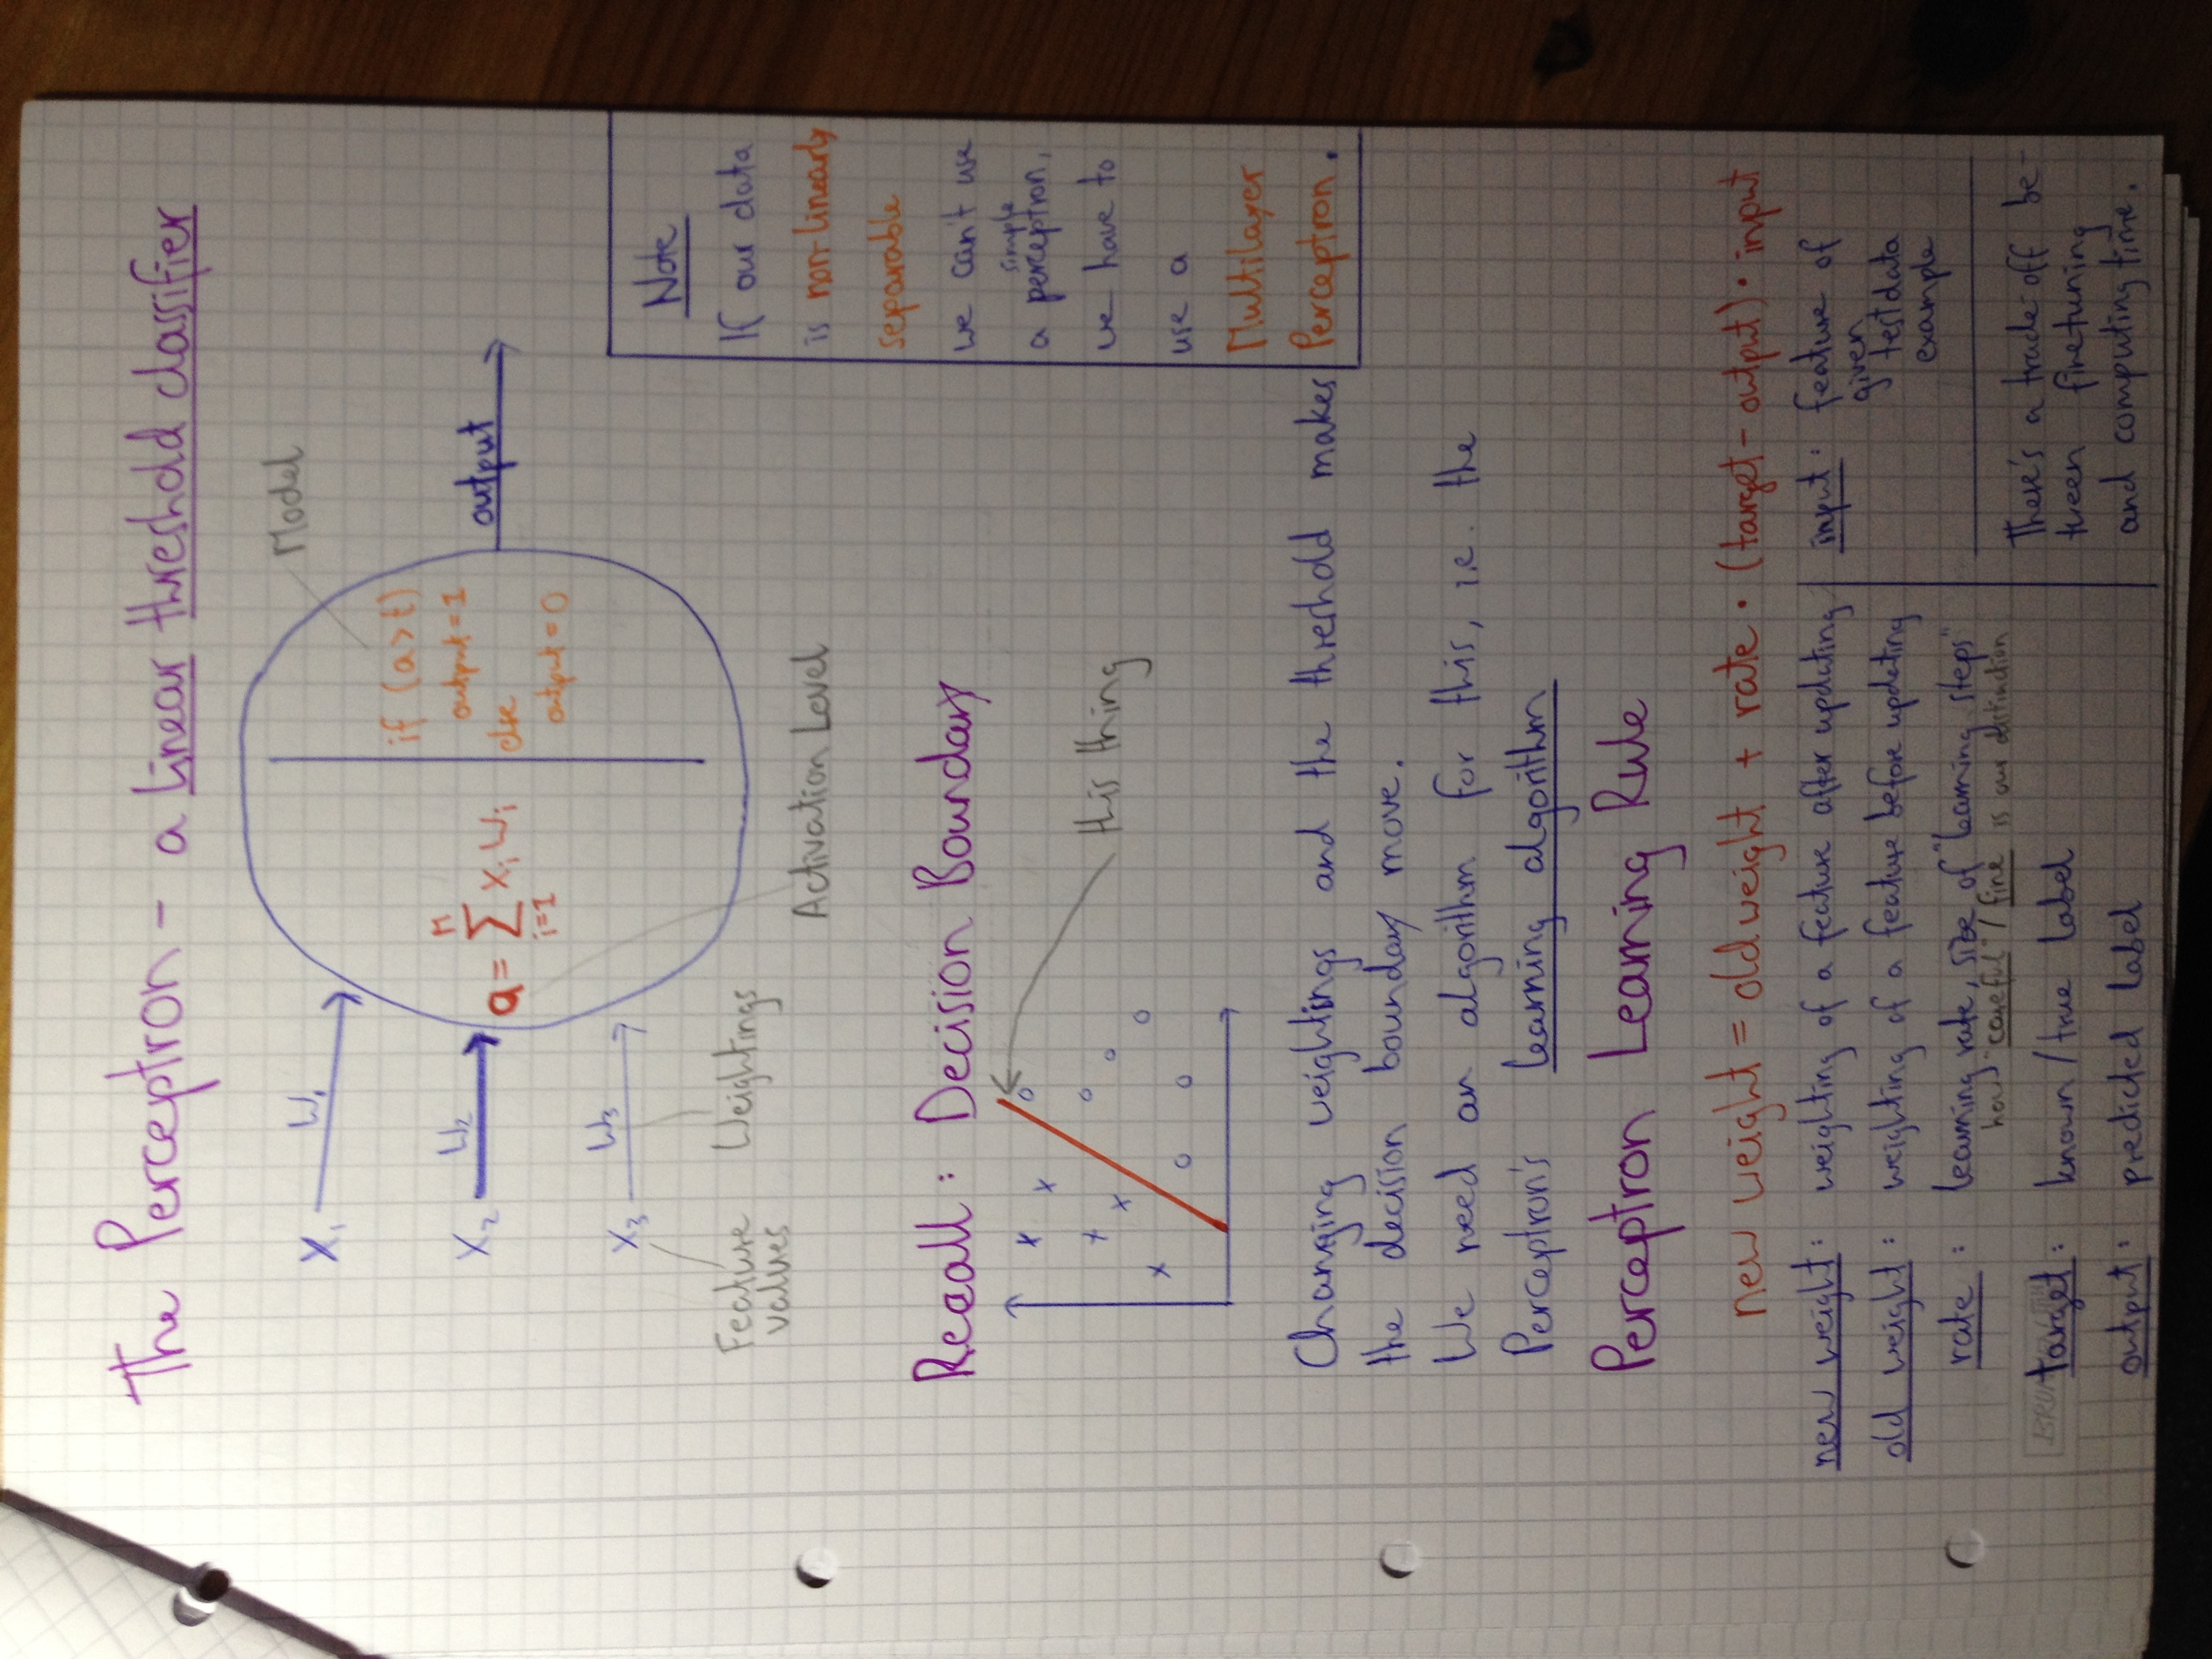 The Perceptron - a linear threshold classifier
X₁ W₁
X₂ W₂
X₃ W₃
Feature
values
Weightings
a = M∑i=1 Xi Wi
Activation Level
Model
if (a>t)
output = 1
else
output = 0
output
Note
If our data
is non-linearly
separable
we can't use
a simple perceptron,
we have to
use a
Multilayer
Perceptron.
Recall: Decision Boundary
this thing
Changing weightings and the threshold makes
the decision boundary move.
We need an algorithm for this, i.e. the
Perceptron's learning algorithm
Perceptron Learning Rule
new weight = old weight + rate · (target - output) · input
new weight: weighting of a feature after updating
old weight: weighting of a feature before updating
rate: learning rate, size of "learning steps"
how "careful" / fine is our distinction
target: known/true label
output: predicted label
input: feature of
given
testdata
example
There's a trade-off be-
tween finetuning
and computing time.